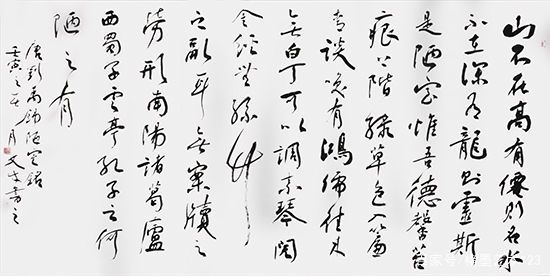 山不在高有僊則名水
不在深有龍則靈斯
是陋室惟吾德馨苔
痕上階綠草色入簾
青談笑有鴻儒往来
無白丁可以調素琴閱
金經無絲竹
之亂耳無案牘之
勞形南陽諸葛廬
西蜀子雲亭孔子云何
陋之有
唐劉禹錫陋室銘
壬寅之 月文 書之